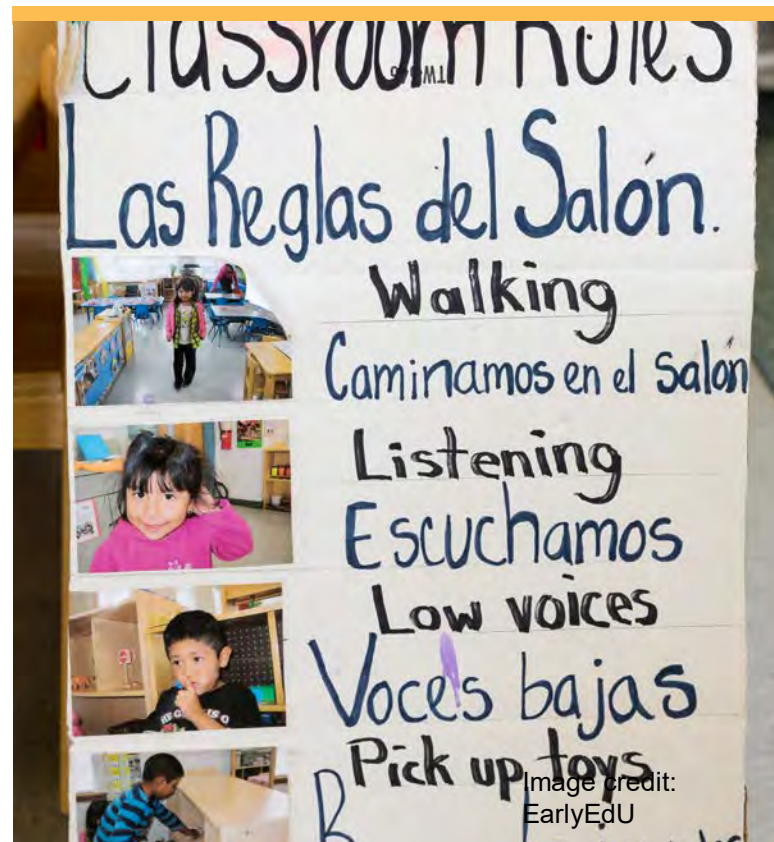 Classroom Rules
Las Reglas del Salón.
Walking
Caminamos en el salón
Listening
Escuchamos
Low voices
Voces bajas
Pick up toys
Image credit:
EarlyEdU